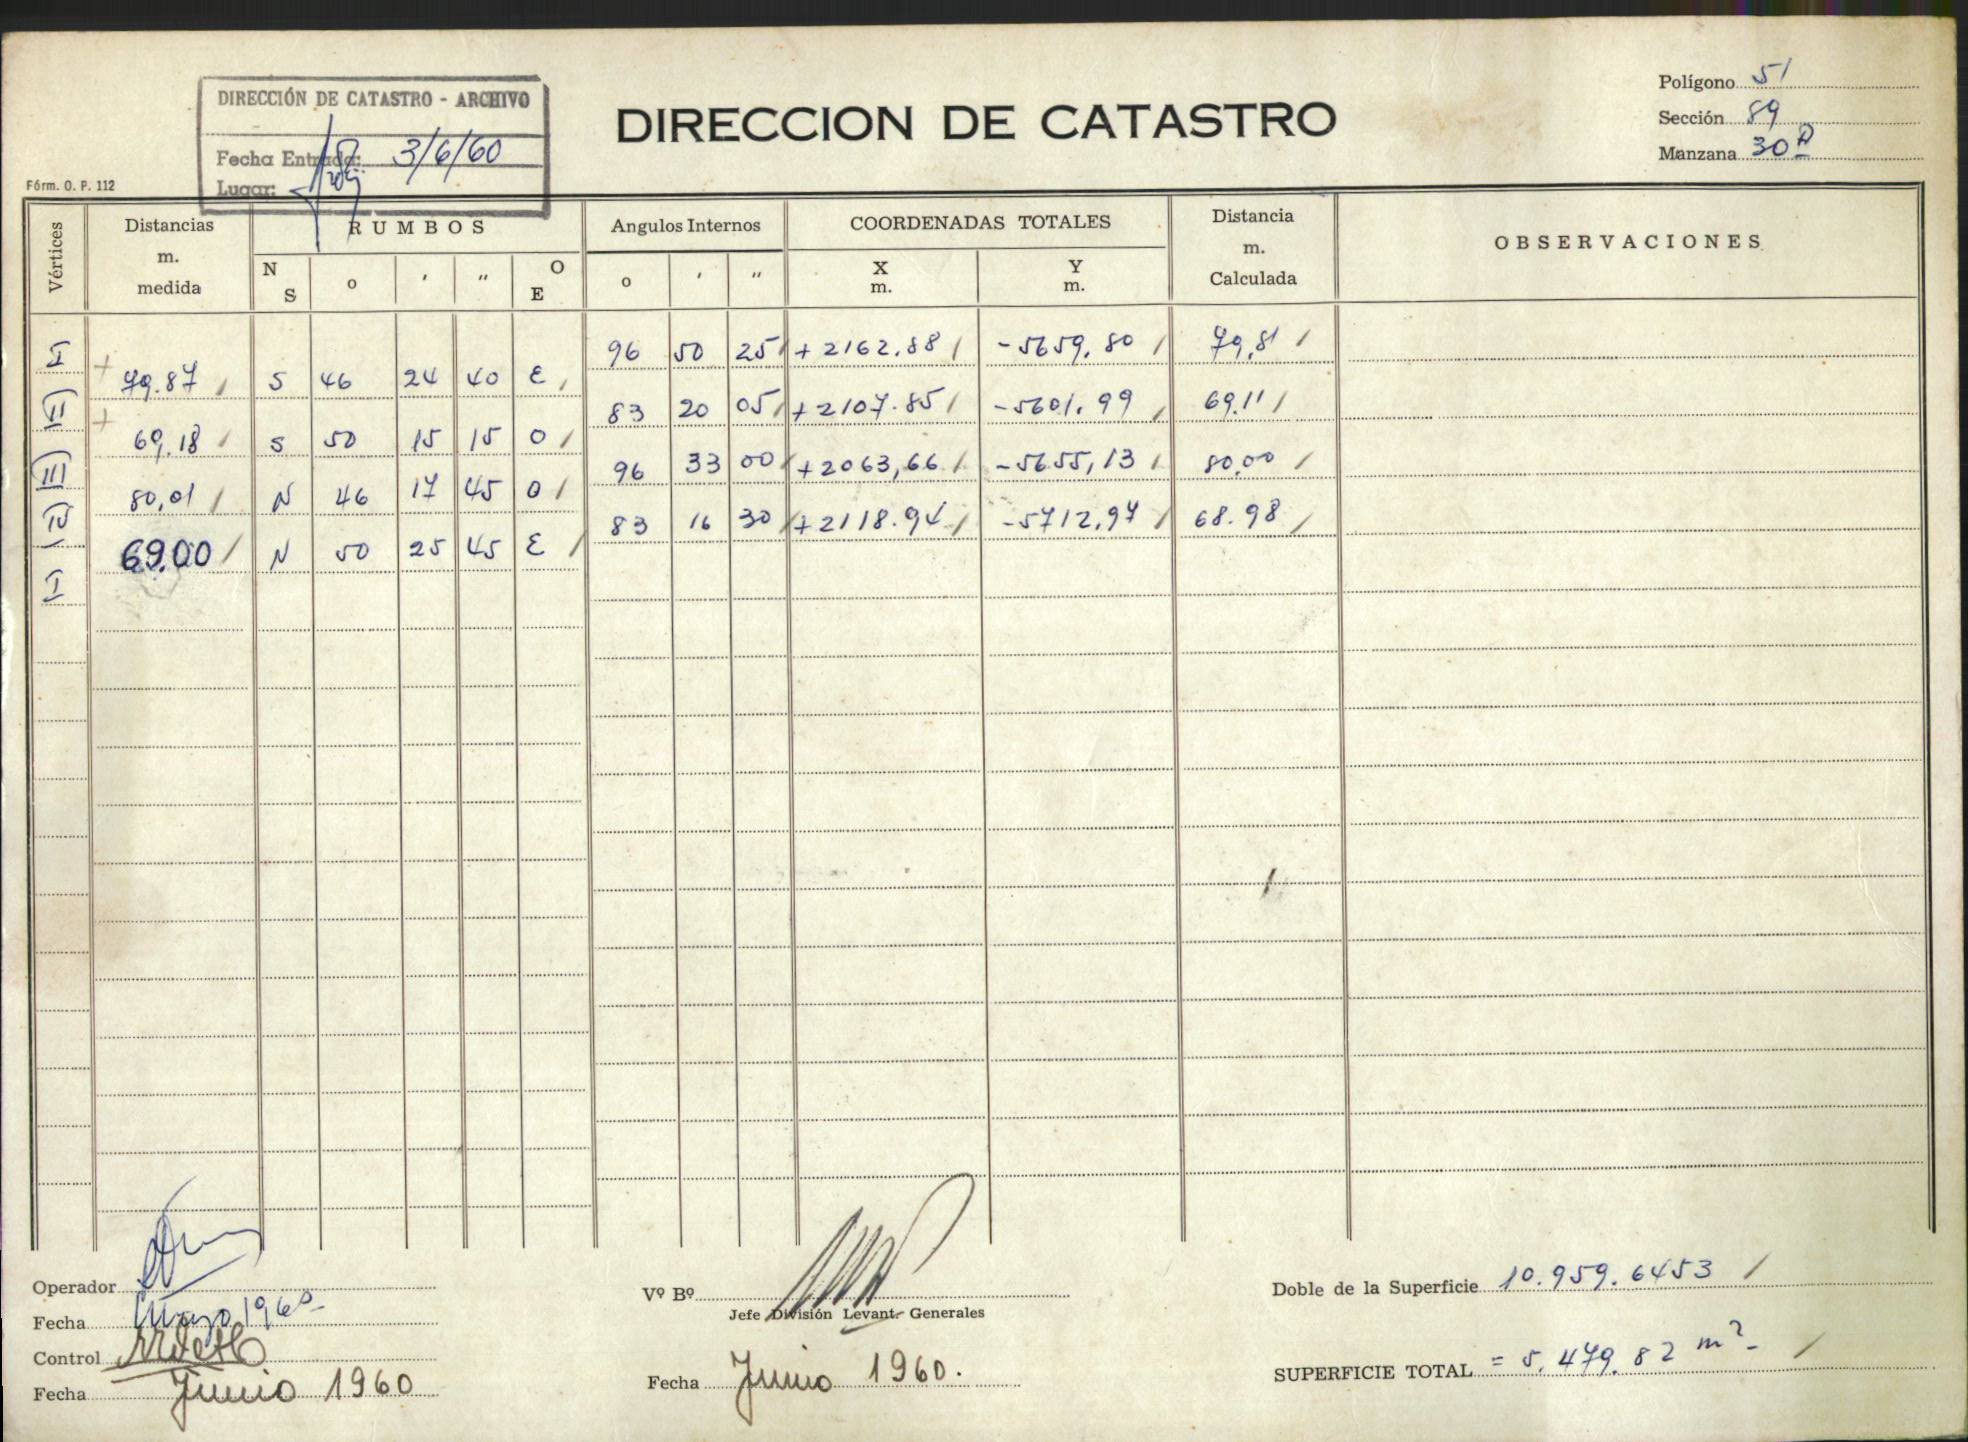 DIRECCIÓN DE CATASTRO - ARCHIVO
Fecha Entrada: 3/6/60
Lugar:
DIRECCION DE CATASTRO
Polígono 51
Sección 89
Manzana 30D
Fórm. O. P. 112
Vértices
Distancias m. medida
RUMBOS
N S
o ′ ″
O E
Angulos Internos
o ′ ″
COORDENADAS TOTALES
X m.
Y m.
Distancia m. Calculada
OBSERVACIONES
I 96 50 25 + 2162.88 - 5659,80 79,81
79.87 S 46 24 40 E
II 83 20 05 + 2107.85 - 5601.99 69.11
69,18 S 50 15 15 O
III 96 33 00 + 2063,66 - 5655,13 80,00
80,01 N 46 17 45 O
IV 83 16 30 + 2118.94 - 5712,97 68.98
69.00 N 50 25 45 E
I
Operador
Fecha Mayo 1960
Control
Fecha Junio 1960
Vº Bº
Jefe División Levant. Generales
Fecha Junio 1960.
Doble de la Superficie 10.959.6453
SUPERFICIE TOTAL = 5.479.82 m²-